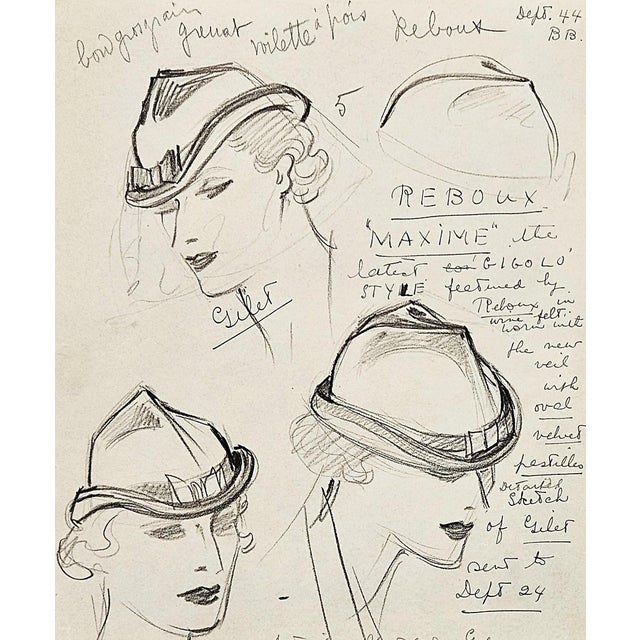 bord grosgrain
grenat
voilette à pois
Reboux
Dept. 44
BB.
5
REBOUX
"MAXIME" the
latest 'GIGOLO'
STYLE featured by
Reboux in
wine felt.
worn with
the new
veil
with
oval
velvet
pastilles
Detailed
Sketch
of Gilet
sent to
Dept 24
Gilet